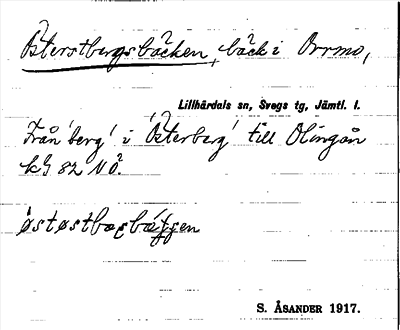 Österstbergsbäcken, bäck i Orrmo,
Lillhärdals sn, Svegs tg, Jämtl. l.
Från 'berg' i 'Österberg' till Olingån
kbl 82 NÖ.
østøstbærbäććen
S. ÅSANDER 1917.